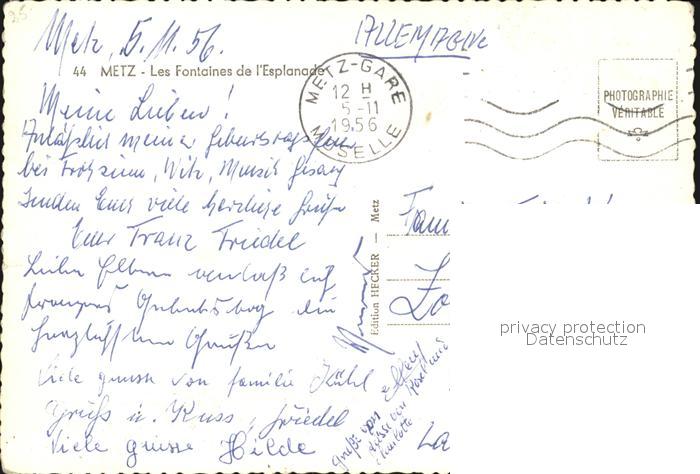 Metz, 5.11.56.
ALLEMAGNE
44 METZ - Les Fontaines de l'Esplanade
METZ-GARE
12 H
5-11
1956
MOSELLE
PHOTOGRAPHIE
VÉRITABLE
Meine Lieben!
Anläßlich meiner Geburtstagsfeier
bei Frohsinn, Witz, Musik Gesang
senden Euch viele herzliche Grüße
Euer Franz Friedel
Liebe Eltern
Geburtstag die
herzlichsten Grüße
Viele grüsse von familie Kühl
Gruß u. Kuss, Friedel
Viele grüsse Hilde
Edition HECKER — Metz
Fam
Grüße von
privacy protection
Datenschutz